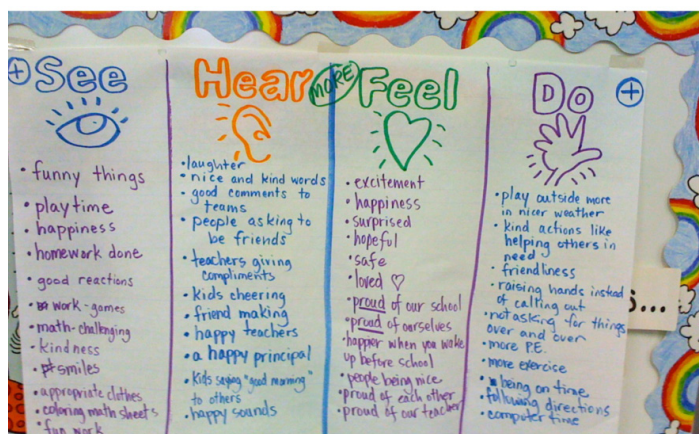 + See
funny things
playtime
happiness
homework done
good reactions
work-games
math-challenging
kindness
smiles
appropriate clothes
coloring math sheets
fun work
Hear
laughter
nice and kind words
good comments to
teams
people asking to
be friends
teachers giving
compliments
kids cheering
friend making
happy teachers
a happy principal
Kids saying "good morning"
to others
happy sounds
MORE
Feel
excitement
happiness
surprised
hopeful
safe
loved ♡
proud of our school
proud of ourselves
happier when you wake
up before school
people being nice
proud of each other
proud of our teacher
Do +
play outside more
in nicer weather
kind actions like
helping others in
need
friendliness
raising hands instead
of calling out
not asking for things
over and over
more P.E.
more exercise
being on time
following directions
computer time
s...